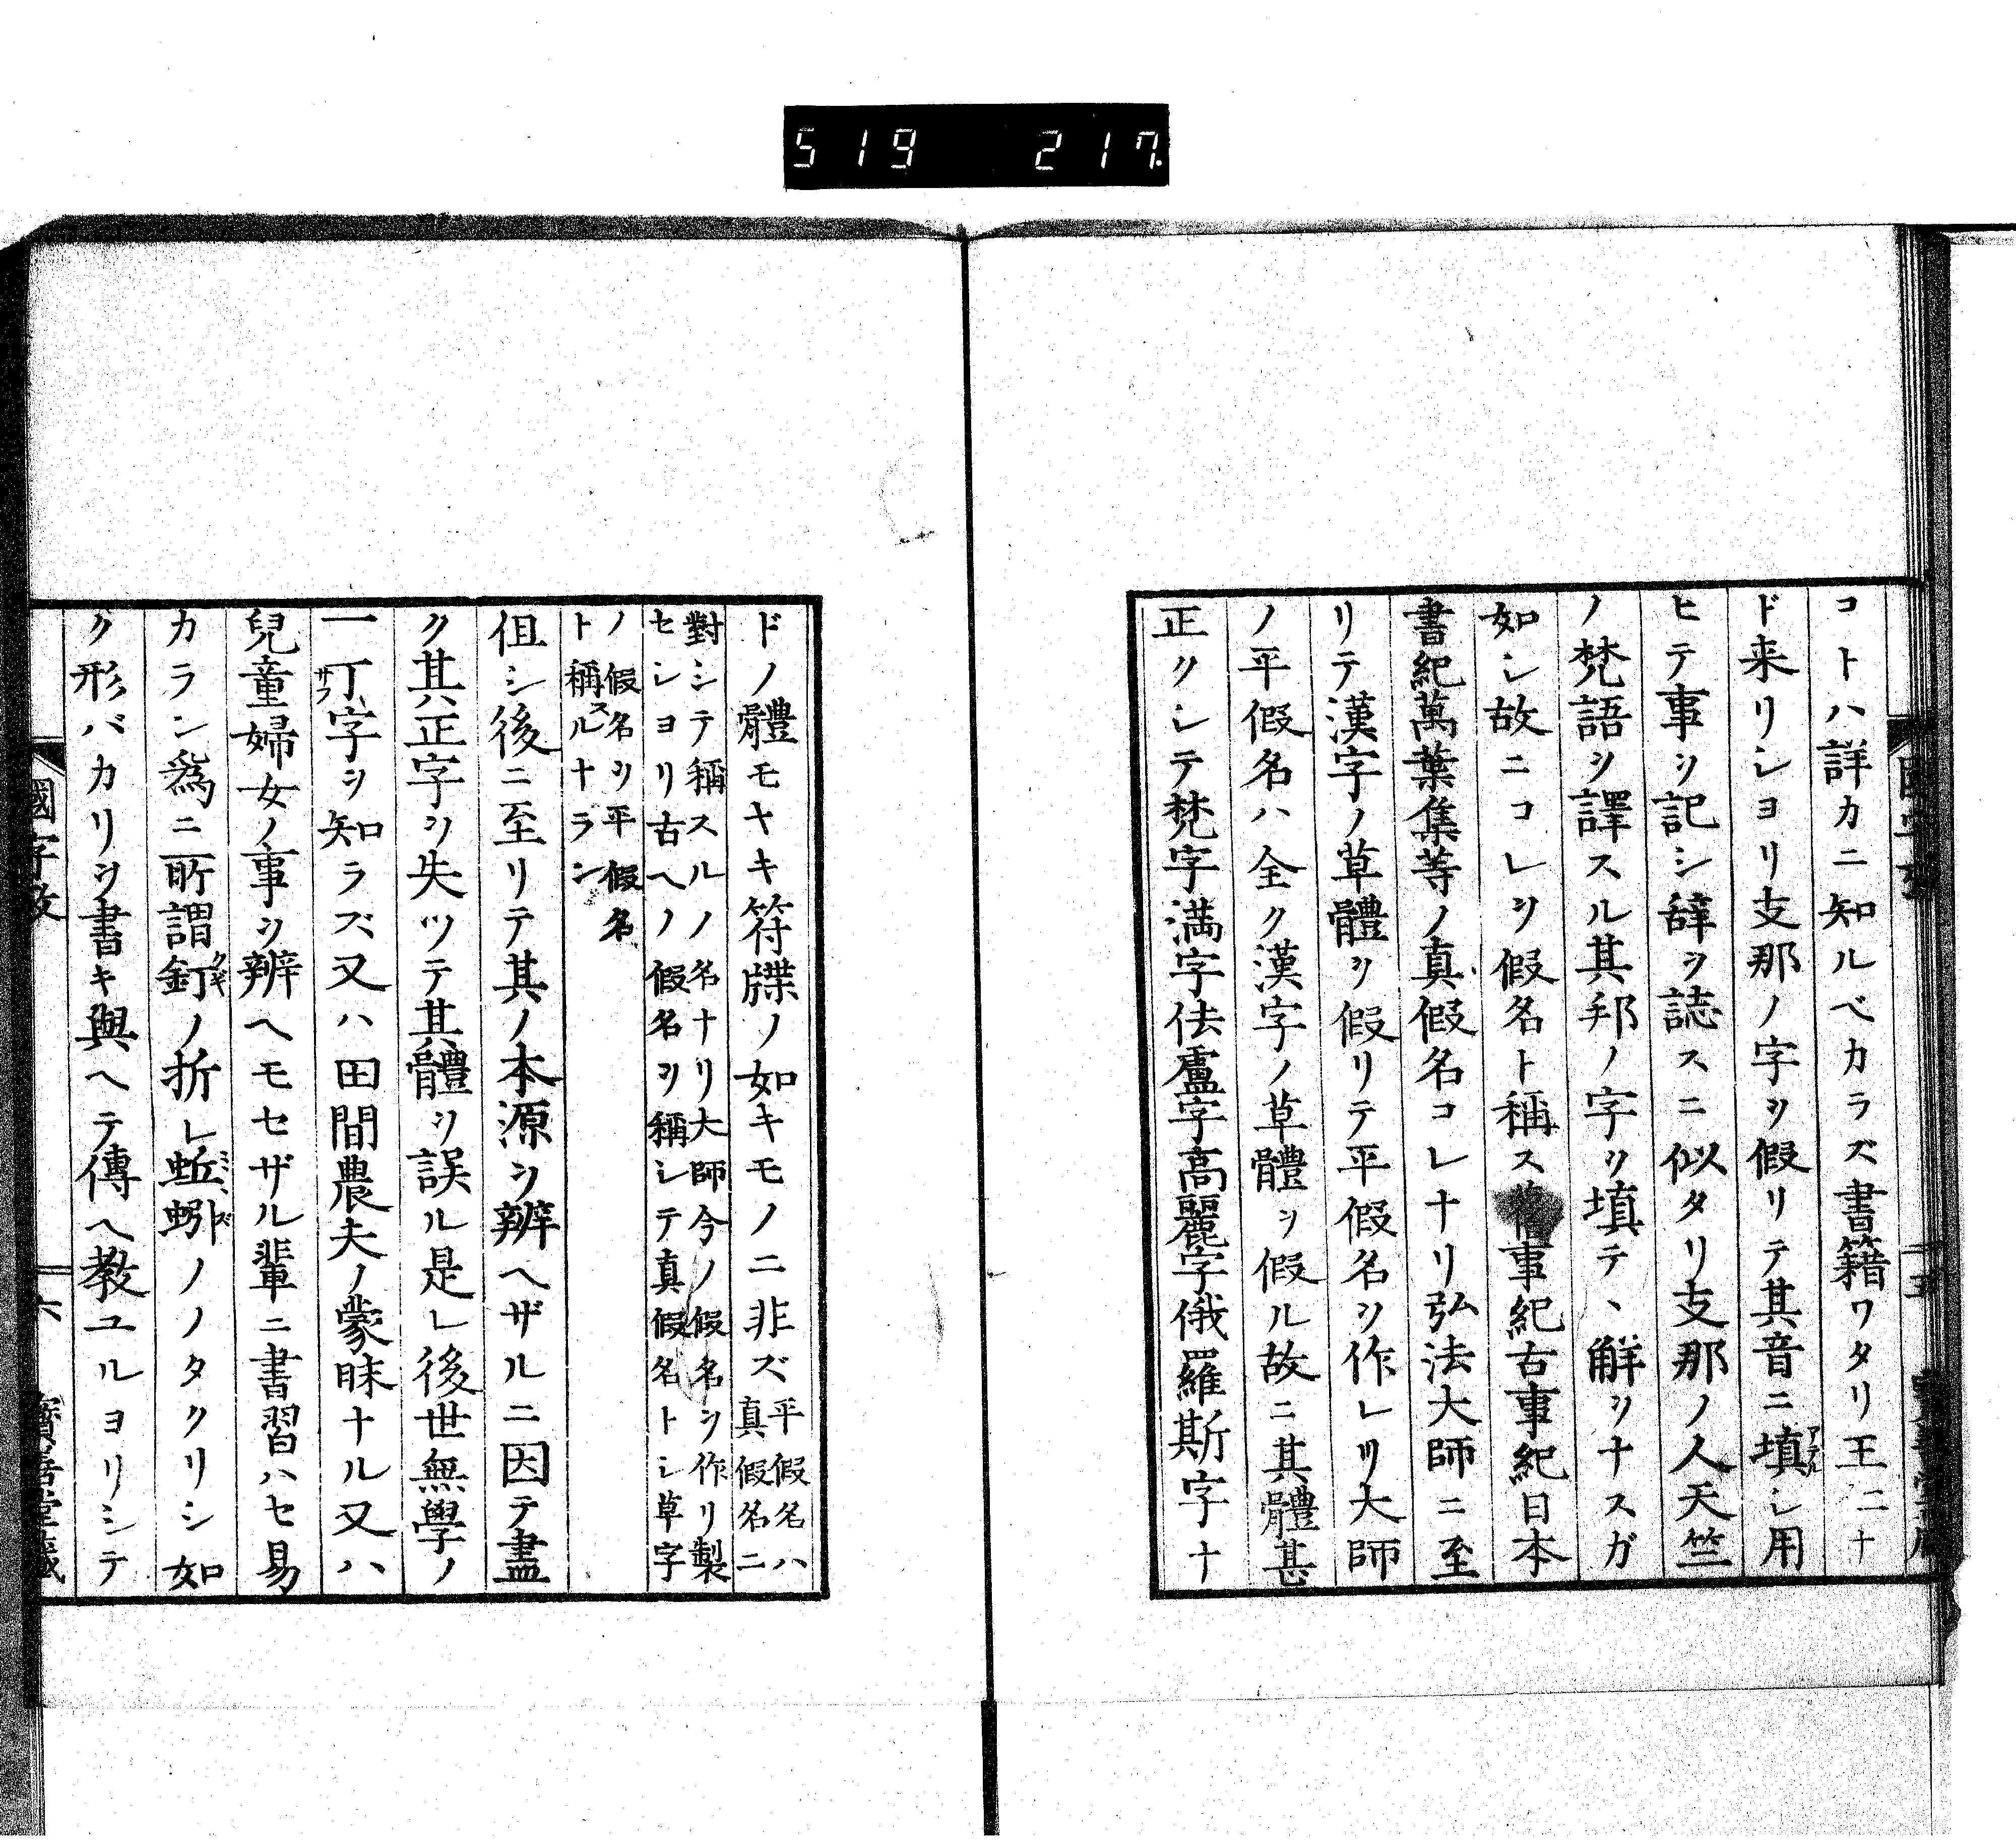 519 217
コトハ詳カニ知ルベカラズ書籍ワタリ王ニナ
ド来リシヨリ支那ノ字ヲ假リテ其音ニ填アテルシ用
ヒテ事ヲ記シ辞ヲ誌スニ似タリ支那ノ人天竺
ノ梵語ヲ譯スル其邦ノ字ヲ填テヽ解ヲナスガ
如シ故ニコレヲ假名ト稱ス舊事紀古事紀日本
書紀萬葉集等ノ真假名コレナリ弘法大師ニ至
リテ漢字ノ草體ヲ假リテ平假名ヲ作レリ大師
ノ平假名ハ全ク漢字ノ草體ヲ假ル故ニ其體甚
正クシテ梵字満字佉盧字高麗字俄羅斯字ナ
ドノ體モヤキ符牒ノ如キモノニ非ズ平假名ハ
真假名ニ
對シテ稱スルノ名ナリ大師今ノ假名ヲ作リ製
セシヨリ古ヘノ假名ヲ稱シテ真假名トシ草字
ノ假名ヲ平假名
ト稱スルナラン
伹シ後ニ至リテ其ノ本源ヲ辨ヘザルニ因テ盡
ク其正字ヲ失ツテ其體ヲ誤ル是レ後世無學ノ
一丁字ヲ知ラズ又ハ田間農夫ノ蒙昧ナル又ハ
兒童婦女ノ事ヲ辨ヘモセザル輩ニ書習ハセ易
カラン爲ニ所謂釘クギノ折レ蚯蚓ミヽズノノタクリシ如
ク形バカリヲ書キ與ヘテ傳ヘ教ユルヨリシテ
國字攷
六
寶善堂藏